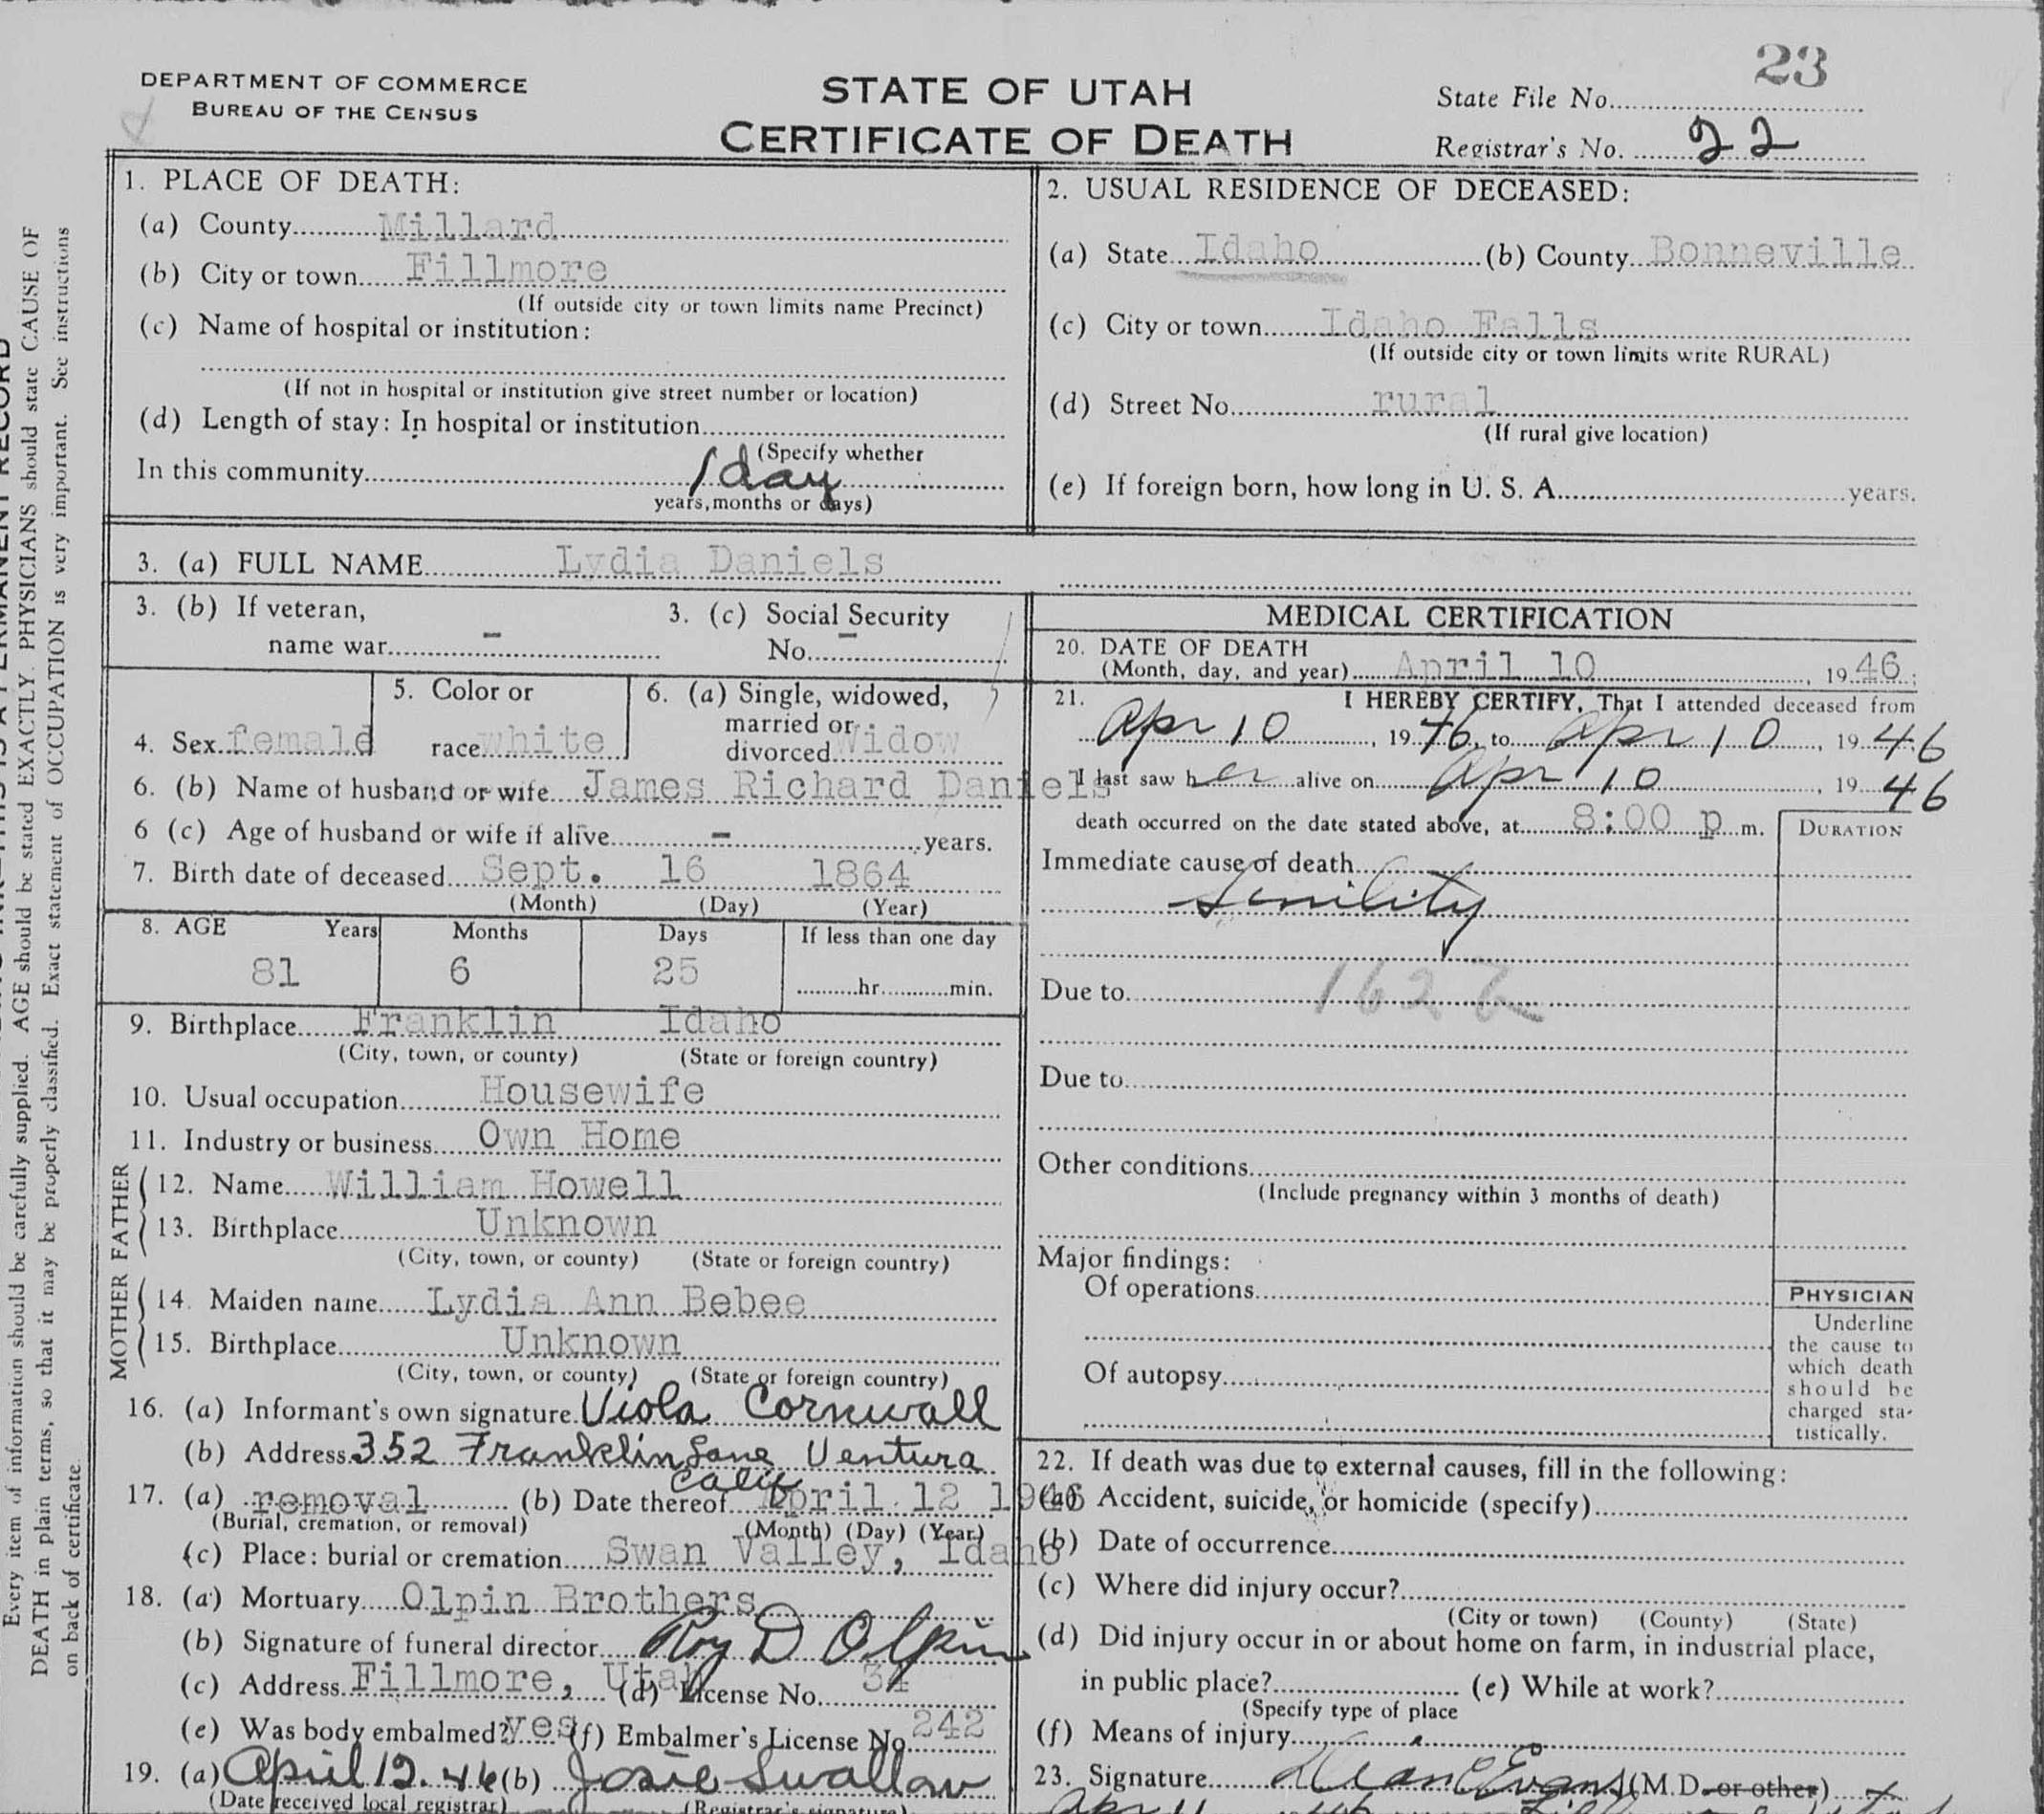 23
DEPARTMENT OF COMMERCE
BUREAU OF THE CENSUS
STATE OF UTAH
CERTIFICATE OF DEATH
State File No.
Registrar's No. 22
1. PLACE OF DEATH:
(a) County Millard
(b) City or town Fillmore
(If outside city or town limits name Precinct)
(c) Name of hospital or institution:
(If not in hospital or institution give street number or location)
(d) Length of stay: In hospital or institution
(Specify whether
In this community 1 day
years, months or days)
2. USUAL RESIDENCE OF DECEASED:
(a) State Idaho (b) County Bonneville
(c) City or town Idaho Falls
(If outside city or town limits write RURAL)
(d) Street No. rural
(If rural give location)
(e) If foreign born, how long in U. S. A. years.
3. (a) FULL NAME Lydia Daniels
3. (b) If veteran,
name war -
3. (c) Social Security
No. -
4. Sex female
5. Color or
race white
6. (a) Single, widowed,
married or
divorced Widow
6. (b) Name of husband or wife James Richard Daniels
6 (c) Age of husband or wife if alive - years.
7. Birth date of deceased Sept. 16 1864
(Month) (Day) (Year)
8. AGE Years Months Days If less than one day
81 6 25 hr. min.
9. Birthplace Franklin Idaho
(City, town, or county) (State or foreign country)
10. Usual occupation Housewife
11. Industry or business Own Home
FATHER
12. Name William Howell
13. Birthplace Unknown
(City, town, or county) (State or foreign country)
MOTHER
14. Maiden name Lydia Ann Bebee
15. Birthplace Unknown
(City, town, or county) (State or foreign country)
16. (a) Informant's own signature Viola Cornwall
(b) Address 352 Franklin Lane Ventura
Calif
17. (a) removal (b) Date thereof April 12 1946
(Burial, cremation, or removal) (Month) (Day) (Year)
(c) Place: burial or cremation Swan Valley, Idaho
18. (a) Mortuary Olpin Brothers
(b) Signature of funeral director Roy D Olpin
(c) Address Fillmore, Utah (d) License No. 34
(e) Was body embalmed? yes (f) Embalmer's License No. 242
19. (a) April 12. 46 (b) Josie Swallow
(Date received local registrar) (Registrar's signature)
MEDICAL CERTIFICATION
20. DATE OF DEATH
(Month, day, and year) April 10, 1946;
21. I HEREBY CERTIFY, That I attended deceased from
Apr 10, 1946, to Apr 10, 1946
I last saw her alive on Apr 10, 1946
death occurred on the date stated above, at 8:00 p m.
DURATION
Immediate cause of death
Senility
Due to 162 b
Due to
Other conditions
(Include pregnancy within 3 months of death)
Major findings:
Of operations
Of autopsy
PHYSICIAN
Underline
the cause to
which death
should be
charged sta-
tistically.
22. If death was due to external causes, fill in the following:
(a) Accident, suicide, or homicide (specify)
(b) Date of occurrence
(c) Where did injury occur?
(City or town) (County) (State)
(d) Did injury occur in or about home on farm, in industrial place,
in public place? (e) While at work?
(Specify type of place
(f) Means of injury
23. Signature Evans (M.D. or other)
Every item of information should be carefully supplied. AGE should be stated EXACTLY. PHYSICIANS should state CAUSE OF
DEATH in plain terms, so that it may be properly classified. Exact statement of OCCUPATION is very important. See instructions
on back of certificate.